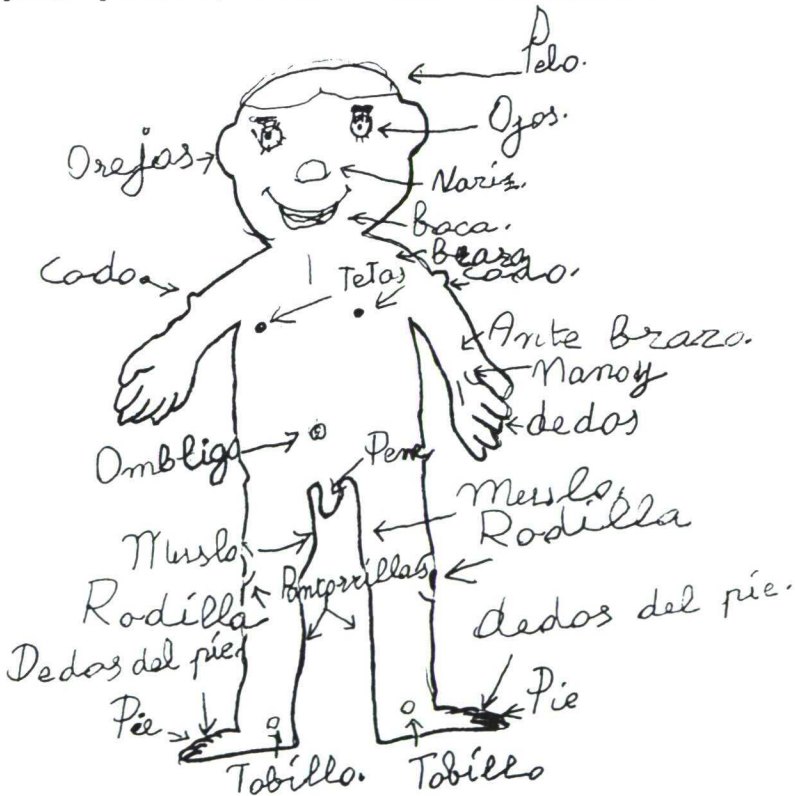 Pelo.
Ojos.
Orejas
Nariz.
boca.
brazo
Codo.
Codo.
Tetas
Ante brazo.
Mano y
dedos
Ombligo
Pene
Muslo.
Rodilla
Muslo
Pantorrillas
Rodilla
dedos del pie.
Dedos del pie
Pie
Pie
Tobillo.
Tobillo